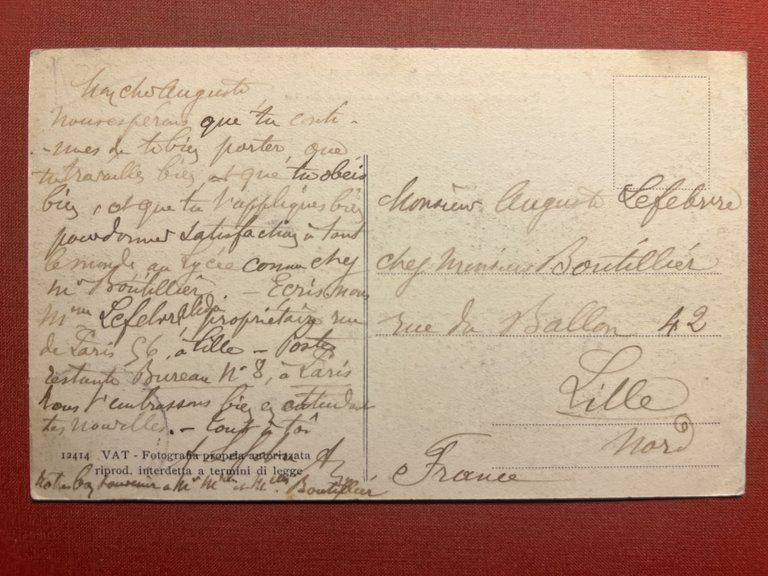 Mon cher Auguste
Nous espérons que tu conti-
-nues de te bien porter, que
tu travailles bien et que tu obéis
bien, et que tu t'appliques bien
pour donner satisfaction à tout
le monde au Lycée comme chez
Mr Boutillier - Ecris-nous
Mme Lefebvre propriétaire rue
de Paris 56, à Lille - Poste
restante Bureau N° 8, à Paris
Nous t'embrassons bien en attendant
tes nouvelles. - tout à toi
12414 VAT - Fotografia propria autorizzata
riprod. interdetta a termini di legge
Notre bon souvenir à Mr Mme et Boutillier
Monsieur Auguste Lefebvre
chez Monsieur Boutillier
rue du Ballon 42
Lille
Nord
France